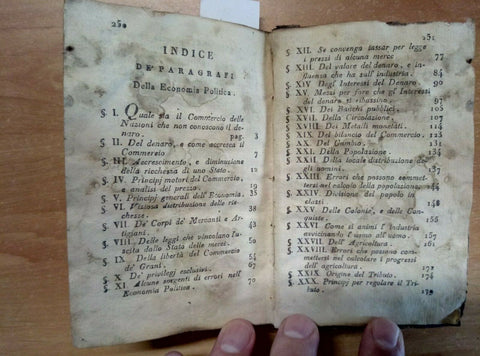 250
INDICE
DE' PARAGRAFI
Della Economia Politica.
§. I. Quale sia il Commercio delle
Nazioni che non conoscono il de-
naro. pag. 3
§. II. Del denaro, e come accresca il
Commercio 7
§. III. Accrescimento, e diminuzione
della ricchezza di uno Stato. 12
§. IV. Principj motori del Commercio,
e analisi del prezzo. 19
§. V. Principj generali dell'Economia. 35
§. VI. Viziosa distribuzione delle ric-
chezze. 38
§. VII. De' Corpi de' Mercanti e Ar-
tigiani. 43
§. VIII. Delle leggi che vincolano l'u-
scita dallo Stato delle merci. 50
§. IX. Della libertà del Commercio
de' Grani. 54
§. X. De' privilegj esclusivi. 67
§. XI. Alcune sorgenti di errori nell'
Economia Politica. 70
251
§ XII. Se convenga tassar per legge
i prezzi di alcuna merce 77
§ XIII. Del valore del denaro, e in-
fluenza che ha sull'industria. 84
§ XIV. Degl' Interessi del Denaro 90
§ XV. Mezzi per fare che gl' Interessi
del denaro si ribassino. 97
§ XVI. Dei Banchi pubblici.
§ XVII. Della Circolazione.
§ XVIII. Dei Metalli monetati. 114
§ XIX. Del bilancio del Commercio.
§ XX. Del Cambio.
§ XXI. Della Popolazione. 134
§ XXII. Della locale distribuzione de-
gli uomini. 137
§ XXIII. Errori che possono commet-
tersi nel calcolo della popolazione. 144
§ XXIV. Divisione del popolo in
classi 148
§ XXV. Delle Colonie, e delle Con-
quiste.
§ XXVI. Come si animi l' Industria
avvicinando l'uomo all'uomo. 157
§ XXVII. Dell' Agricoltura. 161
§ XXVIII. Errori che possono com-
mettersi nel calcolare i progressi
dell' agricoltura. 171
§ XXIX. Origine del Tributo. 174
§ XXX. Principj per regolare il Tri-
buto. 179